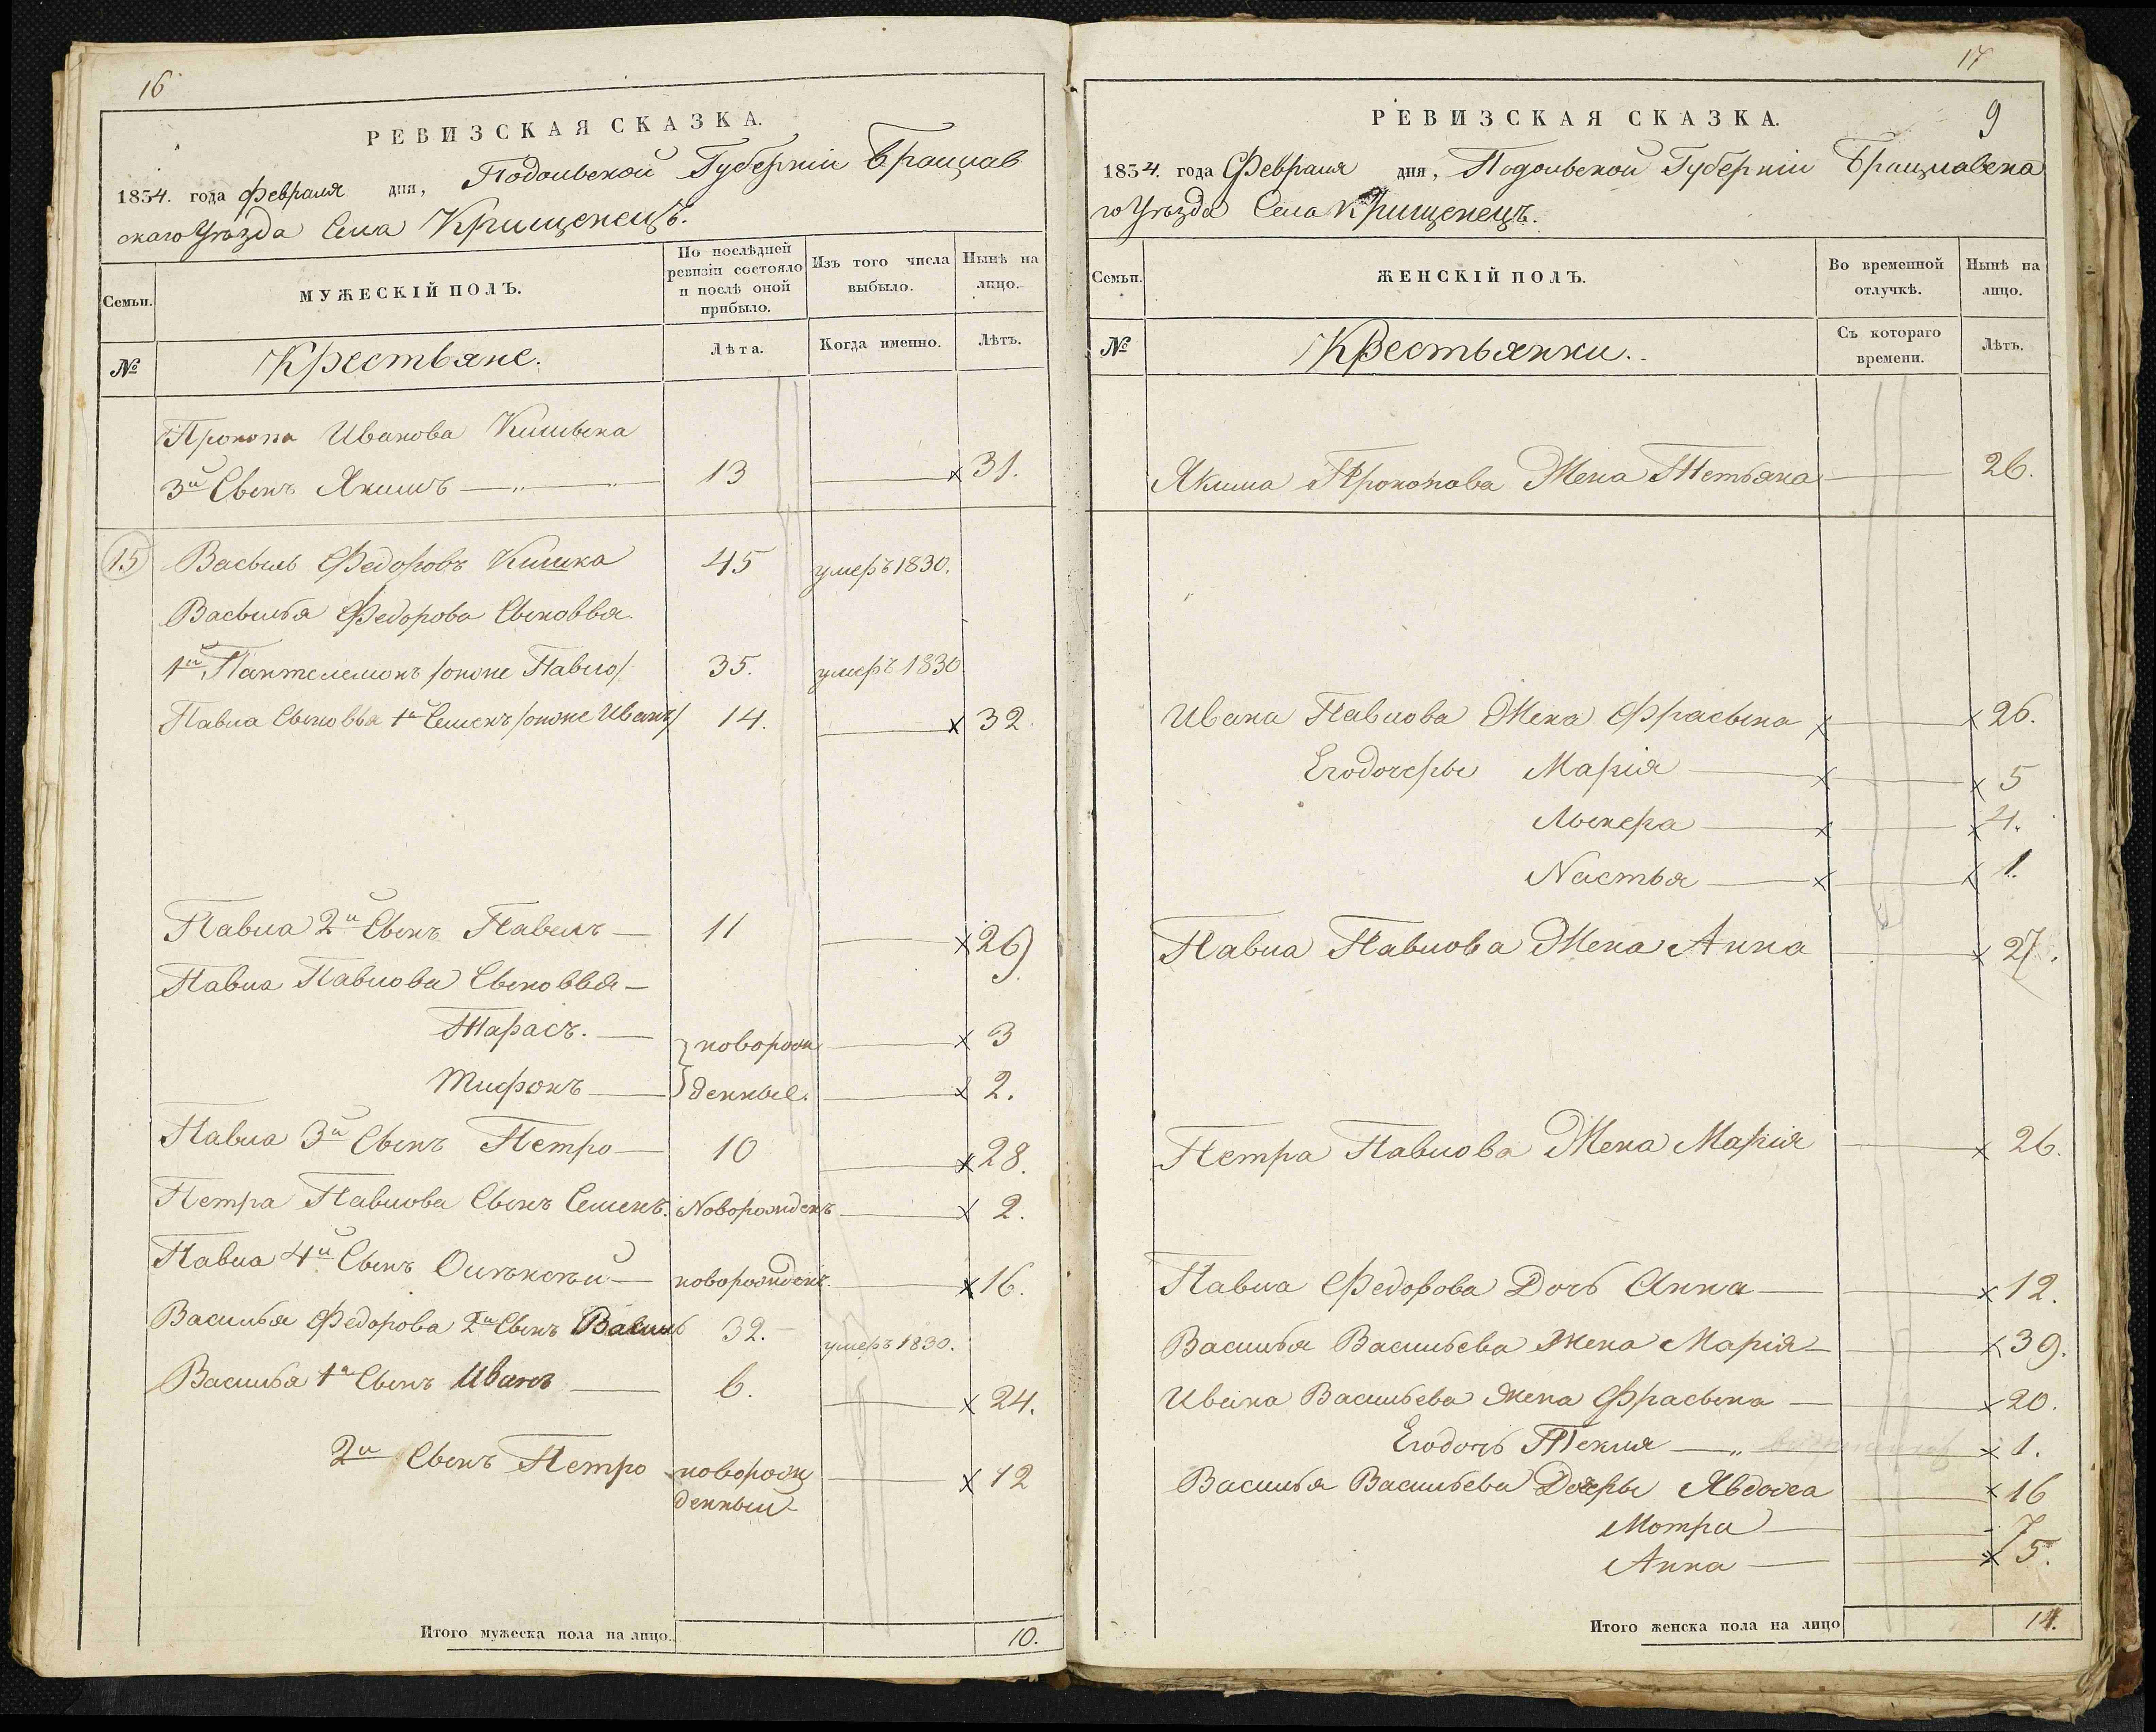 16
РЕВИЗСКАЯ СКАЗКА.
1834. года Февраля дня, Подольской Губерніи Брацлав
скаго Уѣзда Села Крищенецъ.
Семьи.
МУЖЕСКІЙ ПОЛЪ.
По послѣдней ревизіи состояло и послѣ оной прибыло.
Изъ того числа выбыло.
Нынѣ на лицо.
№
Крестьяне.
Лѣта.
Когда именно.
Лѣтъ.
Прокопа Иванова
3й Сынъ Якимъ — 13 — x 31.
15 Васыль Федоровъ Кишка 45 умеръ 1830.
Васылья Федорова Сыновья
1й Пантелемонъ /онже Павло/ 35. умеръ 1830
Павла Сыновья 1й Семенъ /онже Иванъ/ 14. — x 32
Павла 2й Сынъ Павелъ — 11 — x 29
Павла Павлова Сыновья —
Тарасъ. — новорож — x 3
— денные. — x 2.
Павла 3й Сынъ Петро — 10 — x 28.
Петра Павлова Сынъ Семенъ. Новорожденъ — x 2.
Павла 4й Сынъ новорожденъ. — x 16.
Василья Федорова 2й Сынъ Василь 32. — умеръ 1830.
Василья 1й Сынъ Иванъ — 6. — x 24.
2й Сынъ Петро новорож — x 12
денный
Итого мужеска пола на лицо. 10.
17
9
РЕВИЗСКАЯ СКАЗКА.
1834. года Февраля дня, Подольской Губерніи Брацлавска
го Уѣзда Села Крищенецъ.
Семьи.
ЖЕНСКІЙ ПОЛЪ.
Во временной отлучкѣ.
Нынѣ на лицо.
№
Крестьянки.
Съ котораго времени.
Лѣтъ.
Якима Прокопова Жена Тетьяна — 26.
Ивана Павлова Жена Фрасына x — x 26.
Егодочеры Марія — x — x 5
Лыкера — x — x 4.
Настья — x — x 1.
Павла Павлова Жена Анна — x 27.
Петра Павлова Жена Марія — x 26.
Павла Федорова Дочь Анна — x 12.
Василья Васильева Жена Марія — x 39.
Ивана Васильева Жена Фрасына — x 20.
Егодочь Текля — x 1.
Василья Васильева Дочеры Явдоха — x 16
Мотря — 7
Анна — x 5.
Итого женска пола на лицо 14.